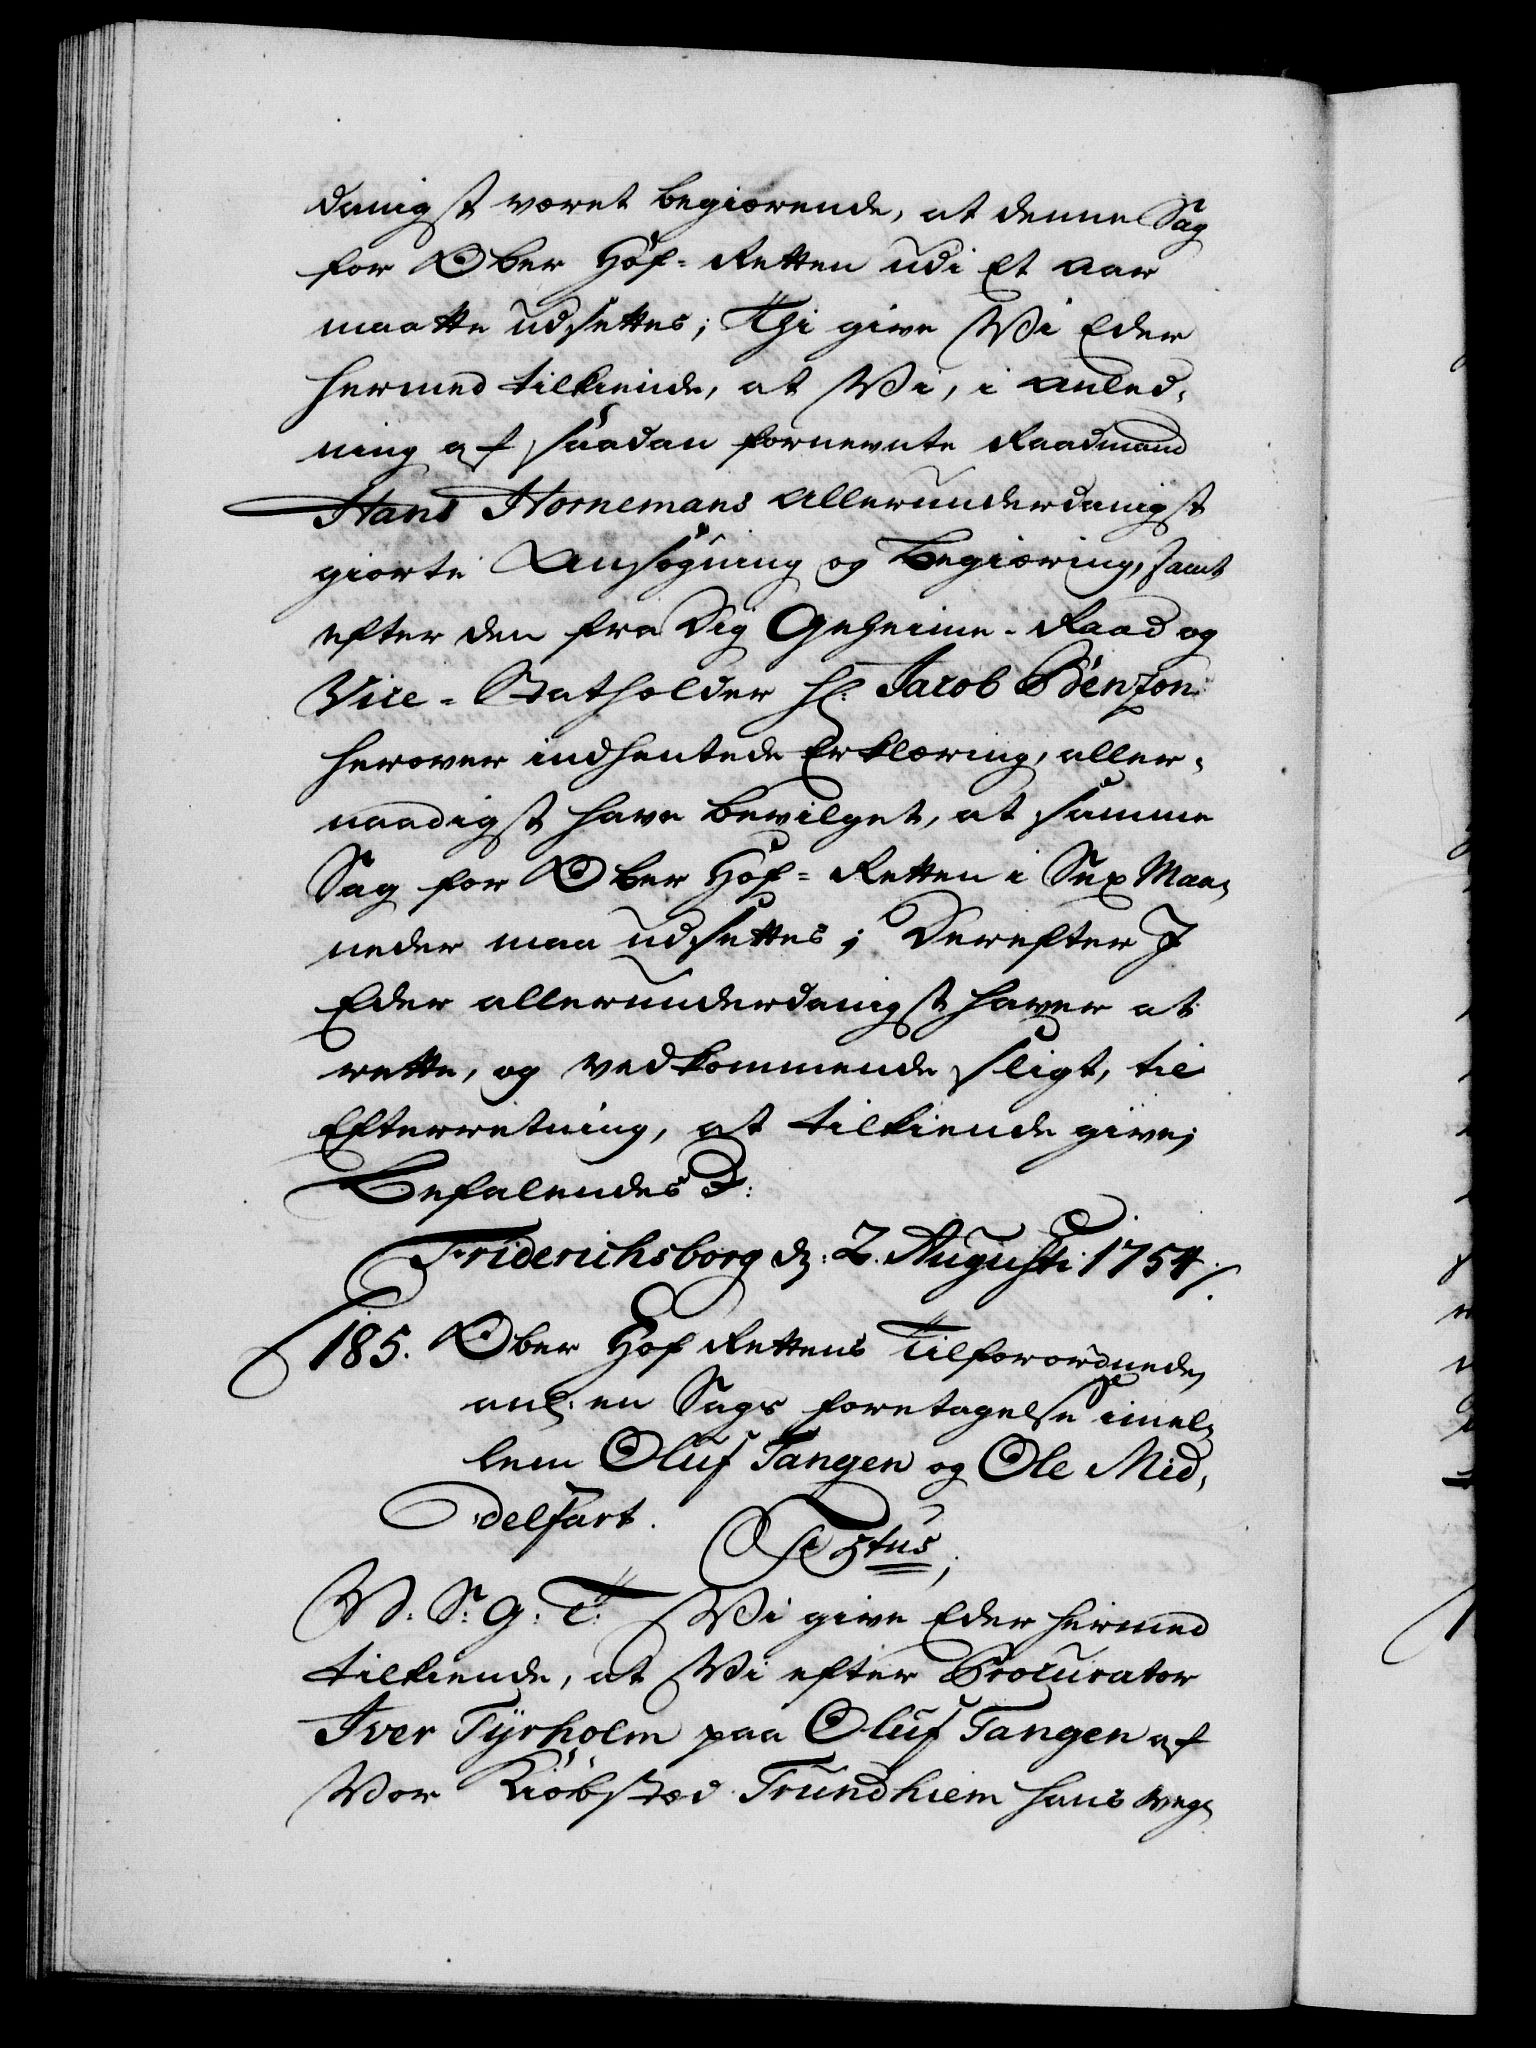 danigst været begiærende, at denne Sag
for Ober Hof-Retten udi Et Aar
maatte udsættes; Thi give Vi Eder
hermed tilkiende, at Vi, i Anled-
ning af saadan fornevnte Raadmand
Hans Hornemans allerunderdanigst
giorte Ansøgning og Begiæring, samt
efter den fra Dig Geheime-Raad og
Vice-Statholder Hr: Jacob Benzon
herover indhentede Erklæring, aller-
naadigst have bevilget, at samme
Sag for Ober Hof-Retten i Sex Maa-
neder maa udsættes; Derefter I
Eder allerunderdanigst haver at
rette, og vedkommende sligt, til
Efterretning, at tilkiende give;
Befalendes D:
Friderichsborg d: 2. Augusti 1754./.
185. Ober Hof Rettens Tilforordnede,
anl: en Sags foretagelse imel-
lem Oluf Tangen og Ole Mid-
delfart.
F 5tus;
V: S: G: T: Vi give Eder hermed
tilkiende, at Vi efter Procurator
Iver Tyrholm paa Oluf Tangen af
Vor Kiøbstæd Trundhiem hans veg-